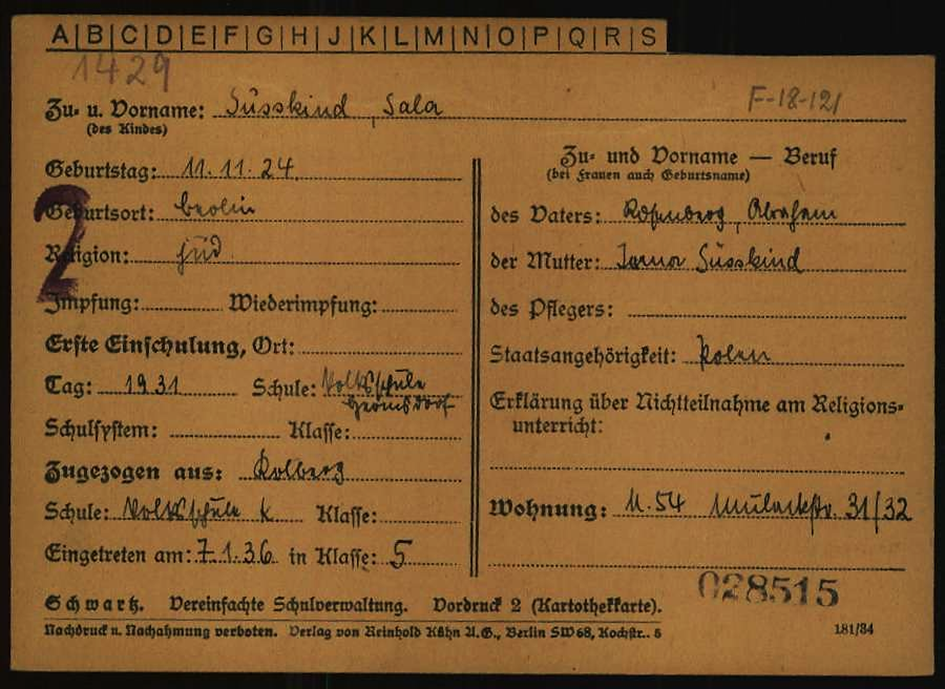 A|B|C|D|E|F|G|H|J|K|L|M|N|O|P|Q|R|S
1429
Zu- u. Vorname: Süsskind, Sala
(des Kindes)
F-18-121
Geburtstag: 11.11.24.
Geburtsort: Berlin
2
Religion: jüd.
Impfung: Wiederimpfung:
Erste Einschulung, Ort:
Tag: 1931 Schule: Volksschule
Schulsystem: Klasse:
Zugezogen aus: Kolberg
Schule: Volksschule K. Klasse:
Eingetreten am: 7.1.36 in Klasse: 5
Zu- und Vorname — Beruf
(bei Frauen auch Geburtsname)
des Vaters: Rosenberg, Abraham
der Mutter: Süsskind
des Pflegers:
Staatsangehörigkeit: Polen
Erklärung über Nichtteilnahme am Religions-
unterricht:
Wohnung: N.54 Mulackstr. 31/32
028515
Schwartz. Vereinfachte Schulverwaltung. Vordruck 2 (Kartothekkarte).
Nachdruck u. Nachahmung verboten. Verlag von Reinhold Kühn A.G., Berlin SW68, Kochstr.. 5
181/34